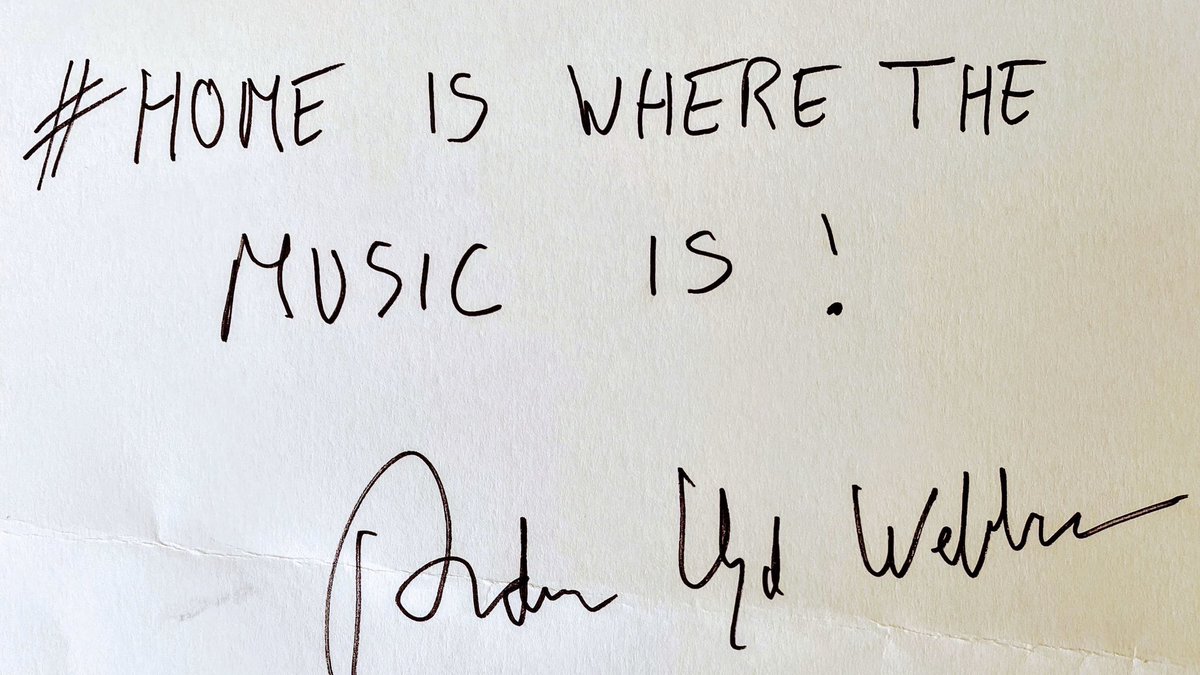 #HOME IS WHERE THE
MUSIC IS!
Andrew Lloyd Webber